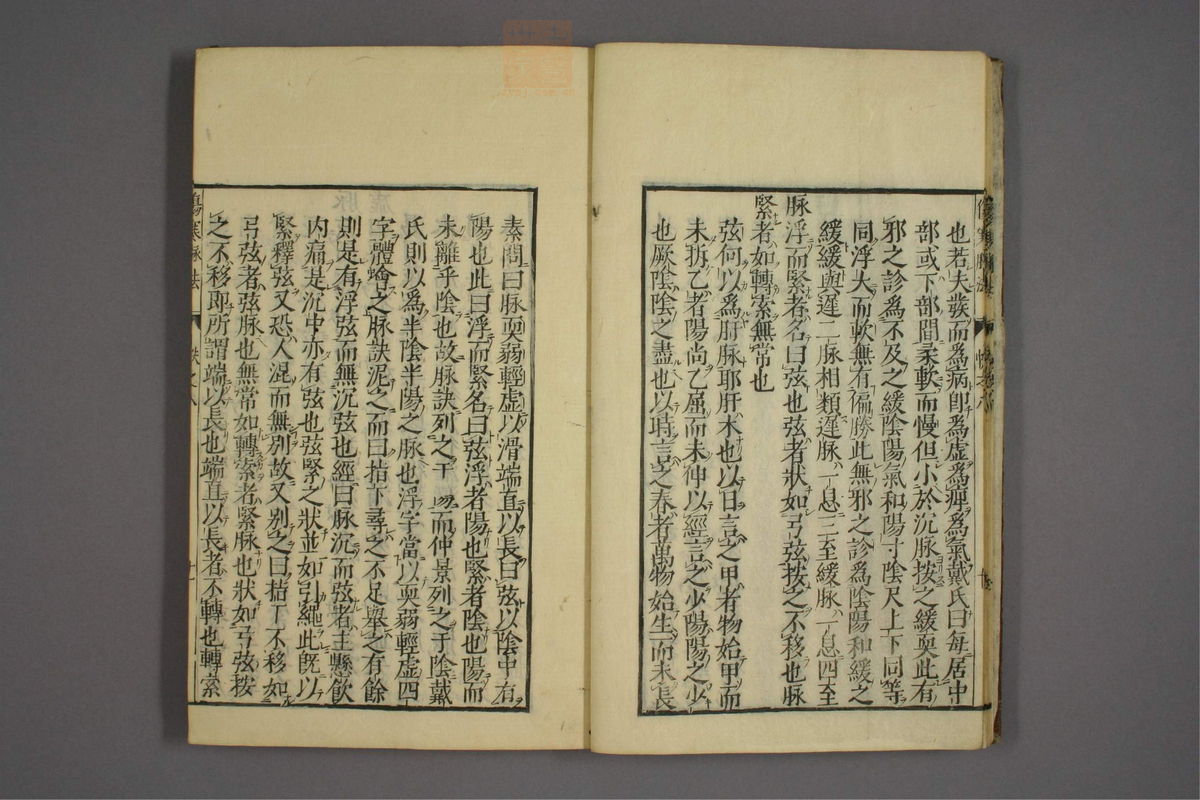 也若夫發而爲病卽爲虛爲痺爲氣戴氏曰每居中
部或下部間柔軟而慢但小於沉脉按之緩耎此有
邪之診爲不及之緩陰陽氣和陽寸陰尺上下同等
同浮大而軟無有偏勝此無邪之診爲陰陽和緩之
緩緩與遲二脉相類遲脉一息三至緩脉一息四至
脉浮而緊者名曰弦也弦者狀如弓弦按之不移也脉
緊者如轉索無常也
弦何以爲肝脉耶肝木也以日言之甲者物始甲而
未拆乙者陽尚乙屈而未伸以經言之少陽陽之少
也厥陰陰之盡也以時言之春者萬物始生而未長
素問曰脉耎弱輕虛以滑端直以長曰弦以陰中有
陽也此曰浮而緊名曰弦浮者陽也緊者陰也陽而
未離乎陰也故脉訣列之于 而仲景列之于陰戴
氏則以爲半陰半陽之脉也浮字當以耎弱輕虛四
字體會之脉訣泥之而曰指下尋之不足舉之有餘
則是有浮弦而無沉弦也經曰脉沉而弦者主懸飲
內痛是沉中亦有弦也弦緊之狀並如引繩此旣以
緊釋弦又恐人混而無別故又別之曰指下不移如
弓弦者弦脉也無常如轉索者緊脉也狀如弓弦按
之不移卽所謂端以長也端直以長者不轉也轉索
傷寒脉法